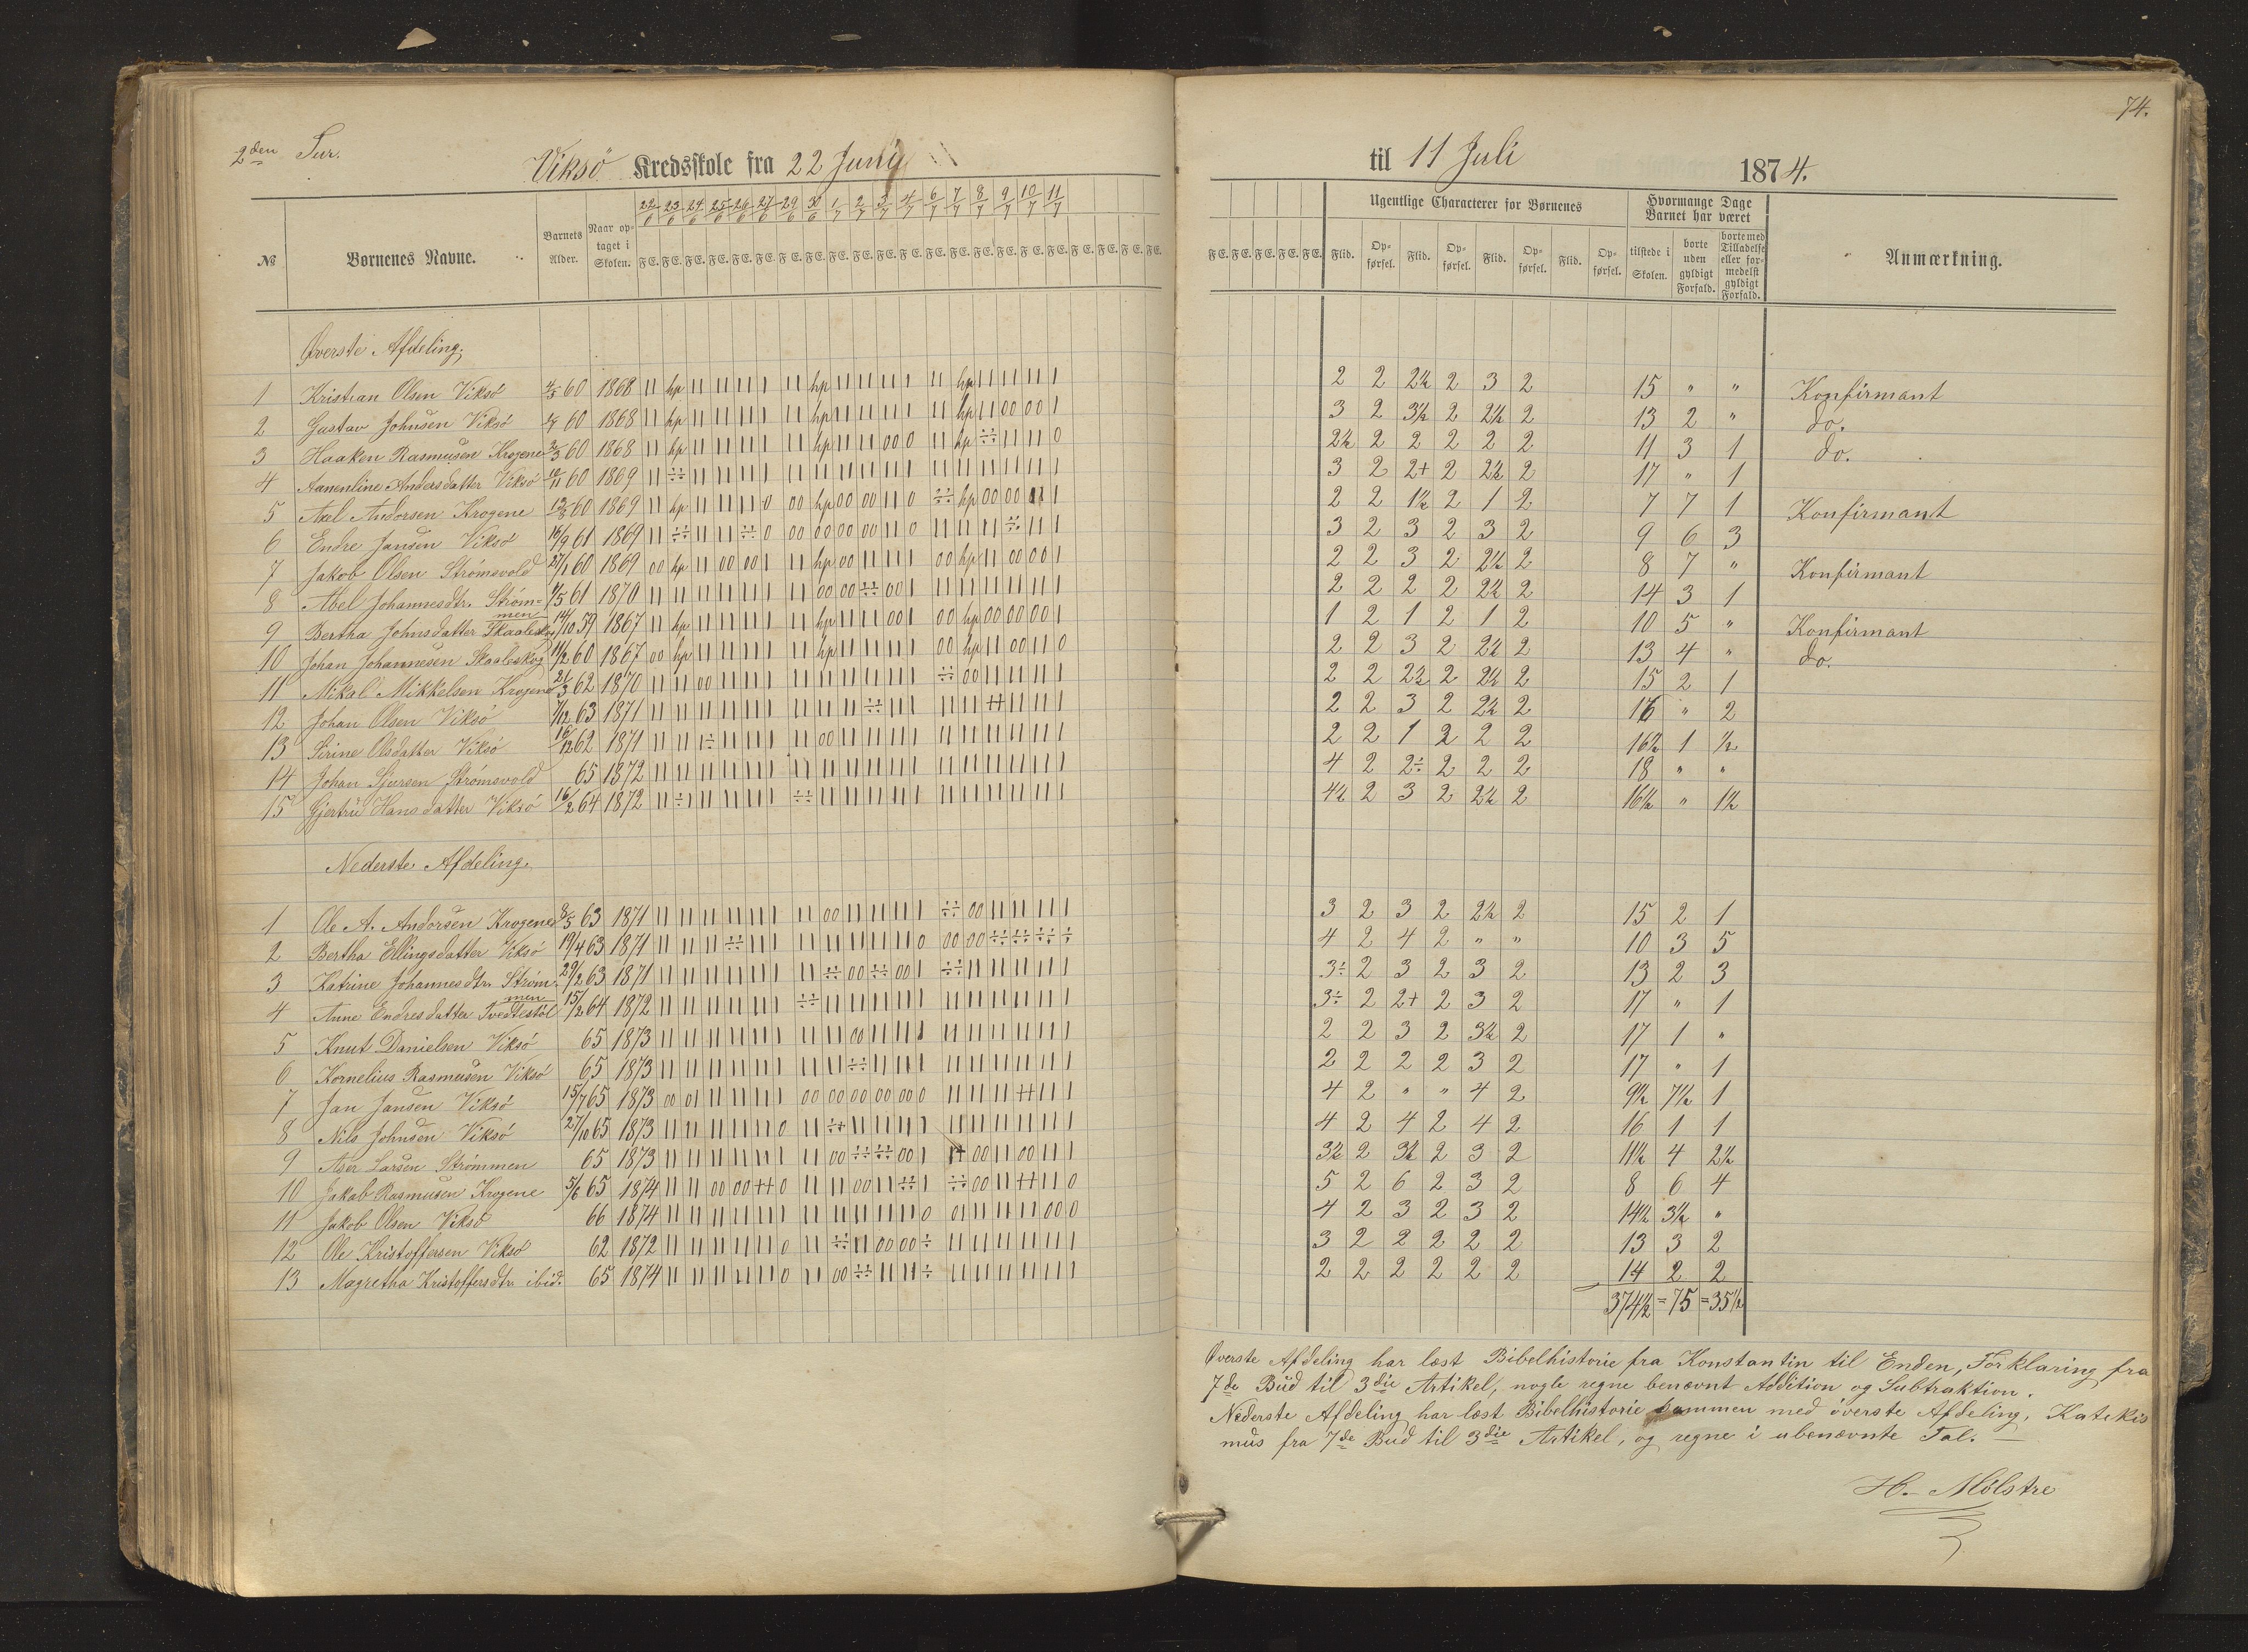 74.
2den Tur.
Viksö Kredsskole fra 22 Juni til 11 Juli 1874.
22/6 23/6 24/6 25/6 26/6 27/6 29/6 30/6 1/7 2/7 3/7 4/7 6/7 7/7 8/7 9/7 10/7 11/7
№ Børnenes Navne. Barnets Alder. Naar optaget i Skolen. F.E. Ugentlige Characterer for Børnenes Flid. Opførsel. Flid. Opførsel. Flid. Opførsel. Flid. Opførsel. Hvormange Dage Barnet har været tilstede i Skolen. borte uden gyldigt Forfald. borte med Tilladelse eller formedelst gyldigt Forfald. Anmærkning.
Øverste Afdeling.
1 Kristian Olsen Viksö 60 1868 2 2 2½ 2 3 2 15 " " Konfirmant
2 Gustav Johnsen Viksö 60 1868 3 2 3½ 2 2½ 2 13 2 " do.
3 Haaken Rasmusen Krogene 60 1868 2½ 2 2 2 2 2 11 3 1 do.
4 Andersdatter Viksö 60 1869 3 2 2+ 2 2½ 2 17 " 1
5 Axel Andorsen Krogene 60 1869 2 2 1½ 2 1 2 7 7 1 Konfirmant
6 Endre Jansen Viksö 61 1869 3 2 3 2 3 2 9 6 3
7 Jakob Olsen Strömsvold 27/1 60 1869 2 2 3 2 2½ 2 8 7 " Konfirmant
8 Abel Johannesdtr. Strömmen 61 1870 2 2 2 2 2½ 2 14 3 1
9 Bertha Johnsdatter Skaaleskog 14/10 59 1867 1 2 1 2 1 2 10 5 " Konfirmant
10 Johan Johannesen Skaaleskog 11/2 60 1867 2 2 3 2 2½ 2 13 4 " do.
11 Mikal Mikkelsen Krogene 21/3 62 1870 2 2 2½ 2 2½ 2 15 2 1
12 Johan Olsen Viksö 7/12 63 1871 2 2 3 2 2½ 2 16 " 2
13 Sirine Olsdatter Viksö 16/12 62 1871 2 2 1 2 2 2 16½ 1 ½
14 Johan Sjursen Strömsvold 65 1872 4 2 2÷ 2 2 2 18 " "
15 Gjertru Hansdatter Viksö 16/2 64 1872 4½ 2 3 2 2½ 2 16½ " 1½
Nederste Afdeling.
1 Ole A. Andorsen Krogene 8/5 63 1871 3 2 3 2 2½ 2 15 2 1
2 Bertha Ellingsdatter Viksö 19/4 63 1871 4 2 4 2 " " 10 3 5
3 Katrine Johannesdtr. Strömmen 29/2 63 1871 3÷ 2 3 2 3 2 13 2 3
4 Anne Endresdatter Tvedtestöl 15/2 64 1872 3÷ 2 2+ 2 3 2 17 " 1
5 Knut Danielsen Viksö 65 1873 2 2 3 2 3½ 2 17 1 "
6 Kornelius Rasmusen Viksö 65 1873 2 2 2 2 3 2 17 " 1
7 Jan Jansen Viksö 15/7 65 1873 4 2 " " 4 2 9½ 7½ 1
8 Nils Johnsen Viksö 27/10 65 1873 4 2 4 2 4 2 16 1 1
9 Aser Larsen Strömmen 65 1873 3½ 2 3½ 2 3 2 11½ 4 2½
10 Jakob Rasmusen Krogene 5/6 65 1874 5 2 6 2 3 2 8 6 4
11 Jakob Olsen Viksö 66 1874 4 2 3 2 3 2 14½ 3½ "
12 Ole Kristoffersen Viksö 62 1872 3 2 2 2 2 2 13 3 2
13 Magretha Kristoffersdtr. ibid. 65 1874 2 2 2 2 2 2 14 2 2
374½ = 75 = 35½
Øverste Afdeling har læst Bibelhistorie fra Konstantin til Enden, Forklaring fra
7de Bud til 3die Artikel, nogle regne benævnt Addition og Subtraktion.
Nederste Afdeling har læst Bibelhistorie sammen med överste Afdeling, Katekis
mus fra 7de Bud til 3die Artikel, og regne i ubenævnte Tal. —
H. Mölstre